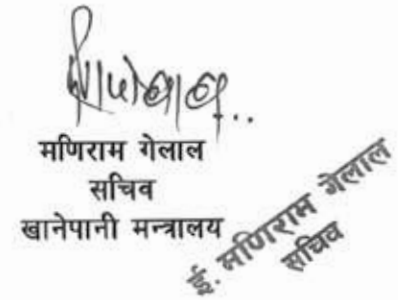 मणिराम गेलाल
सचिव
खानेपानी मन्त्रालय
ई. मणिराम गेलाल
सचिव